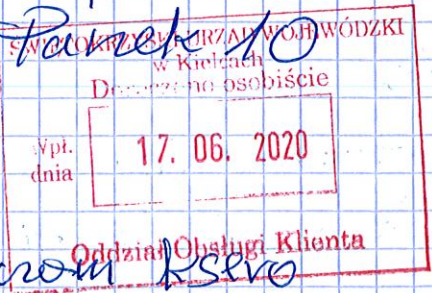 Panek 10
ŚWIĘTOKRZYSKI URZĄD WOJEWÓDZKI
w Kielcach
Doręczono osobiście
Wpł. dnia 17. 06. 2020
Oddział Obsługi Klienta
ksero